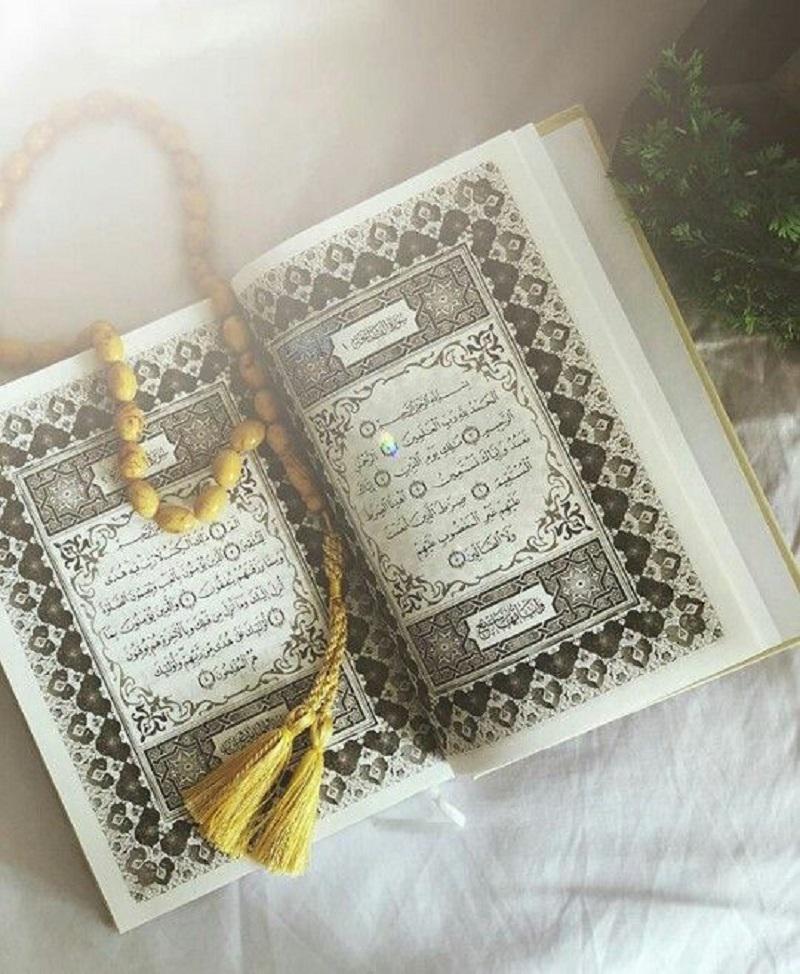 سُورَةُ الفَاتِحَةِ ١
بِسْمِ اللَّهِ الرَّحْمَٰنِ الرَّحِيمِ ١
الْحَمْدُ لِلَّهِ رَبِّ الْعَالَمِينَ ٢ الرَّحْمَٰنِ
الرَّحِيمِ ٣ مَالِكِ يَوْمِ الدِّينِ ٤ إِيَّاكَ
نَعْبُدُ وَإِيَّاكَ نَسْتَعِينُ ٥ اهْدِنَا الصِّرَاطَ
الْمُسْتَقِيمَ ٦ صِرَاطَ الَّذِينَ أَنْعَمْتَ
عَلَيْهِمْ غَيْرِ الْمَغْضُوبِ عَلَيْهِمْ
وَلَا الضَّالِّينَ ٧
الرَّحِيمِ
الم ١ ذَٰلِكَ الْكِتَابُ لَا رَيْبَ فِيهِ هُدًى
لِلْمُتَّقِينَ ٢ الَّذِينَ يُؤْمِنُونَ بِالْغَيْبِ وَيُقِيمُونَ الصَّلَاةَ
وَمِمَّا رَزَقْنَاهُمْ يُنْفِقُونَ ٣ وَالَّذِينَ يُؤْمِنُونَ بِمَا
أُنْزِلَ إِلَيْكَ وَمَا أُنْزِلَ مِنْ قَبْلِكَ وَبِالْآخِرَةِ هُمْ يُوقِنُونَ ٤
أُولَٰئِكَ عَلَىٰ هُدًى مِنْ رَبِّهِمْ وَأُولَٰئِكَ
هُمُ الْمُفْلِحُونَ ٥